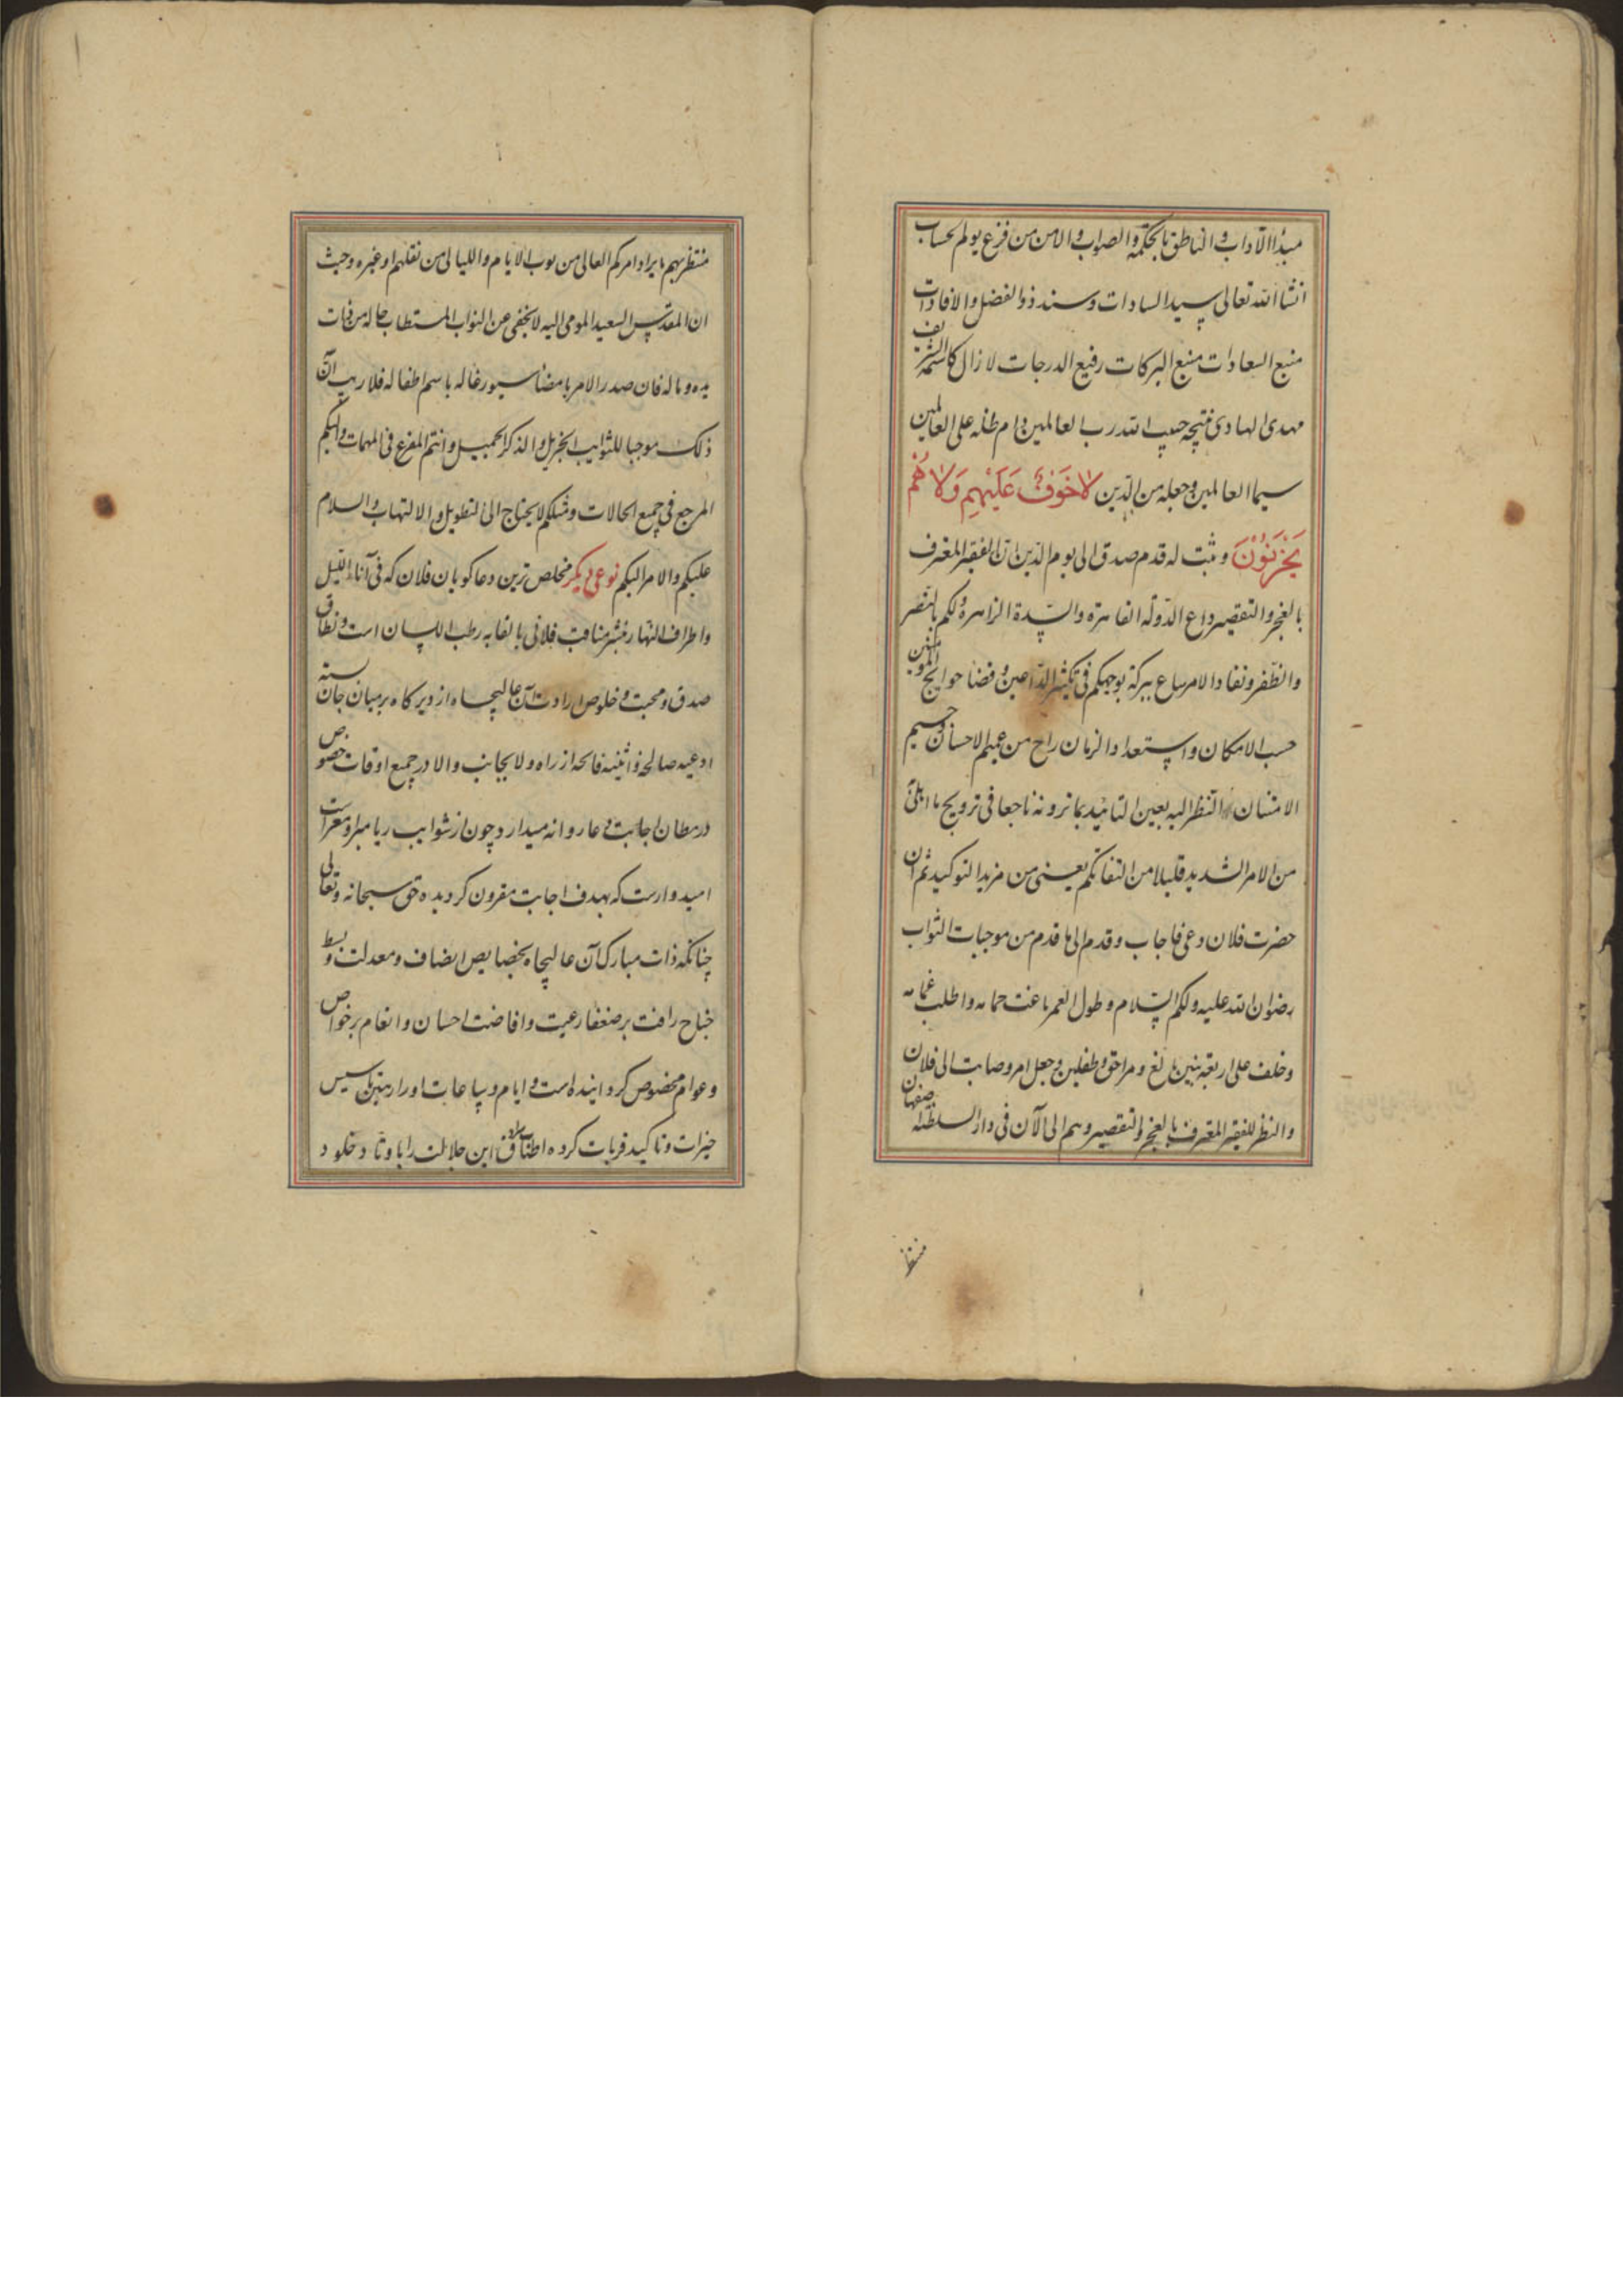 مبدأ الآداب و الناطق بالحکمة و الصواب و الامن من فزع یوم الحساب
انشا الله تعالی سید السادات و سند ذو الفضل و الافادات
منبع السعادات منبع البرکات رفیع الدرجات لازال کاسمه الشریف
مهدی الهادی نتیجه حبیب الله رب العالمین دام ظله علی العالمین
سیما العالمین و جعله من الذین لا خَوفٌ عَلَیْهِم وَلا هُم
یَحْزَنُوْنَ و ثبت له قدم صدق الی یوم الدین ان الفقیر المعترف
بالعجز والتقصیر داع الدولة القاهرة والسدة الزاهرة ولکم بالنصر
والظفر و نفاد الامر ساع ببرکة توجهکم فی تکثیر الداعین و قضا حوایج المؤمنین
حسب الامکان و استعداد الزمان راج من عمیم الاحسان و جسیم
الامتنان النظر الیه بعین التائید بما ترونه ناجعا فی ترویج ما ابلی
من الامر الشدید قلیلا من التفاتکم یغنی من مزید التوکید ثم ان
حضرت فلان دعی فاجاب و قدم الی ما قدم من موجبات الثواب
رضوان الله علیه ولکم السلام و طول العمر
وخلف علی اربعة بنین بالغ و مراحق و طفلین و جعل امر وصایت الی فلان
والنظر للفقیر المعترف بالعجز والتقصیر وهم الی الآن فی دار السلطنه اصفهان
منتظر
منتظر بهم بایراد امرکم العالی من نوب الایام و اللیالی من نقلهم او غیره و حیث
ان المقدس السعید المومی الیه لا یخفی عن النواب المستطاب حاله من ذات
یده و ماله فان صدر الامر بامضا سیورغاله باسم اطفاله فلا ریب ان
ذلک موجبا للثوایب الجزیل و الذکر الجمیل و انتم المفزع فی المهمات و الیکم
المرجع فی جمیع الحالات و مثلکم لا یحتاج الی التطویل و الالتهاب والسلام
علیکم والامر الیکم نوعی دیکر مخلص ترین دعاکویان فلان که فی آناء اللیل
و اطراف النهار بنشر مناقب فلانی بالقابه رطب اللسان است و نطاق
صدق و محبت و خلوص ارادت آن عالیجاه از دیرکاه بر میان جان بسته
ادعیه صالحه و اثنیه فایحه از راه ولا بجانب والا در جمیع اوقات خصوص
در مظان اجابت دعا روانه میدارد چون از شوایب ریا مبرا و معراست
امیدوارست که بهدف اجابت مقرون کردیده حق سبحانه و تعالی
چنانکه ذات مبارک آن عالیجاه بخصایص انصاف و معدلت و بسط
جناح رافت بر ضعفا رعیت و افاضت احسان و انعام بر خواص
و عوام مخصوص کردانیده است و ایام و ساعات او را رهین تاسیس
خیرات و تاکید قربات کرده اطناب سرادق این جلالت را باوتاد خلود